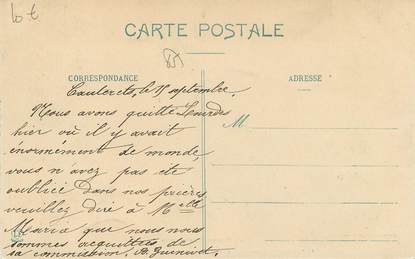 10 €
CARTE POSTALE
CORRESPONDANCE
ADRESSE
Cauterets, le 15 septembre.
Nous avons quitté Lourdes
hier où il y avait
énormément de monde,
vous n'avez pas été
oublié dans nos prières
veuillez dire à Melle
Maria que nous nous
sommes acquittées de
sa commission.
M